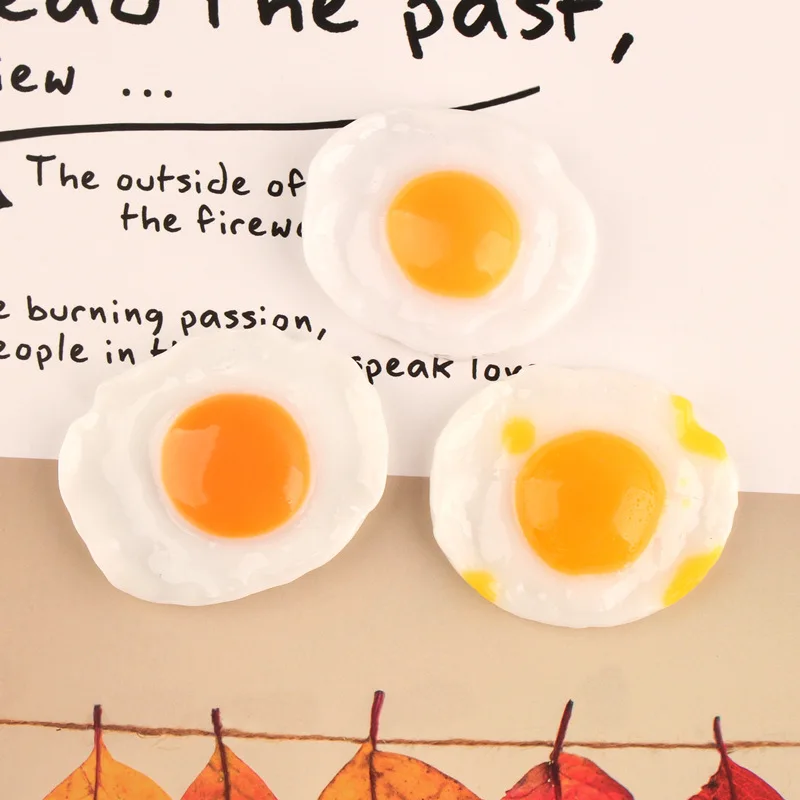 ead the past,
iew ...
The outside of
the firew
e burning passion,
eople in speak lov